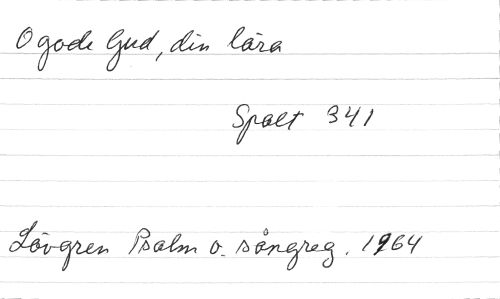 O gode Gud, din lära
Spalt 341
Lövgren Psalm o. sångreg. 1964